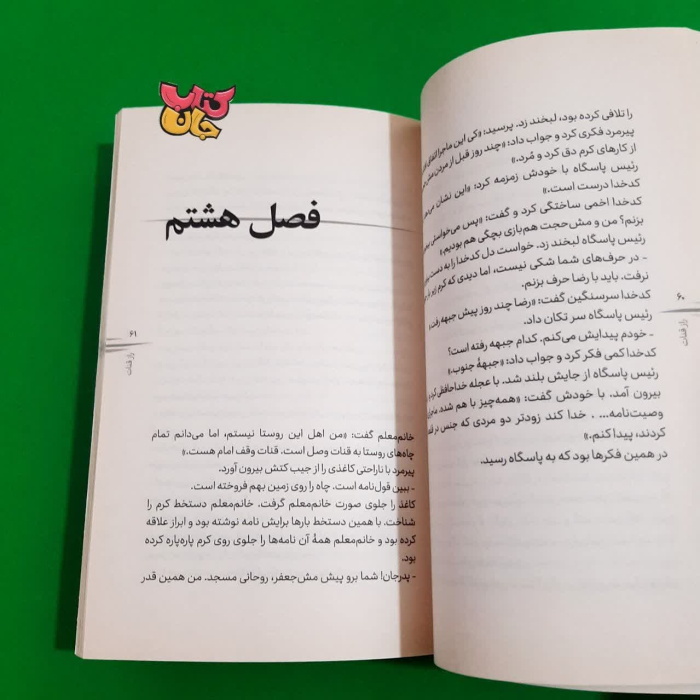 کتاب
جان
را تلافی کرده بود، لبخند زد. پرسید: «کی این ماجرا اتفاق
پیرمرد فکری کرد و جواب داد: «چند روز قبل از مردن مش
از کارهای کرم دق کرد و مُرد.»
رئیس پاسگاه با خودش زمزمه کرد: «این نشان
کدخدا درست است.»
کدخدا اخمی ساختگی کرد و گفت: «پس می‌خواستی
بزنم؟ من و مش‌حجت هم‌بازی بچگی هم بودیم.»
رئیس پاسگاه لبخند زد. خواست دل کدخدا را به دست
- در حرف‌های شما شکی نیست، اما دیدی که کرم زیر بار
نرفت. باید با رضا حرف بزنم.
کدخدا سرسنگین گفت: «رضا چند روز پیش جبهه رفت.»
رئیس پاسگاه سر تکان داد.
- خودم پیدایش می‌کنم. کدام جبهه رفته است؟
کدخدا کمی فکر کرد و جواب داد: «جبههٔ جنوب.»
رئیس پاسگاه از جایش بلند شد. با عجله خداحافظی کرد
بیرون آمد. با خودش گفت: «همه‌چیز با هم شده.
وصیت‌نامه... . خدا کند زودتر دو مردی که جنس در
کردند، پیدا کنم.»
در همین فکرها بود که به پاسگاه رسید.
۶۰
راز قنات
فصل هشتم
۶۱
راز قنات
خانم‌معلم گفت: «من اهل این روستا نیستم، اما می‌دانم تمام
چاه‌های روستا به قنات وصل است. قنات وقف امام هست.»
پیرمرد با ناراحتی کاغذی را از جیب کتش بیرون آورد.
- ببین قول‌نامه است. چاه را روی زمین بهم فروخته است.
کاغذ را جلوی صورت خانم‌معلم گرفت. خانم‌معلم دستخط کرم را
شناخت. با همین دستخط بارها برایش نامه نوشته بود و ابراز علاقه
کرده بود و خانم‌معلم همهٔ آن نامه‌ها را جلوی روی کرم پاره‌پاره کرده
بود.
- پدرجان! شما برو پیش مش‌جعفر، روحانی مسجد. من همین قدر